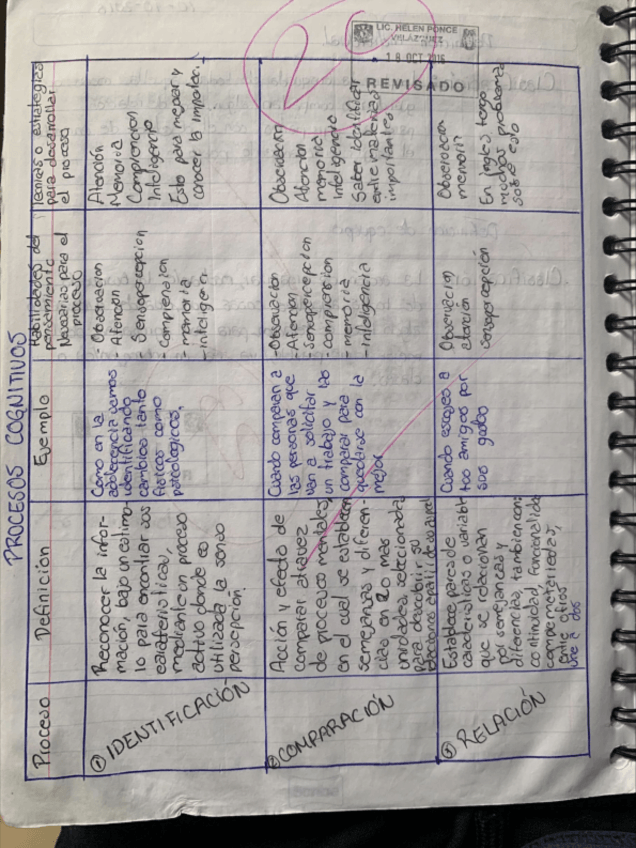 PROCESOS COGNITIVOS
LIC. HELEN PONCE
VELAZQUEZ
18 OCT 2016
REVISADO
Proceso
Definición
Ejemplo
Habilidades del
pensamiento
Necesarias para el
proceso
para desarrollar
el proceso
① IDENTIFICACIÓN
Reconocer la infor-
mación, bajo un estimu-
lo para encontrar sus
mediante un proceso
activo donde es
utilizada la senso
percepción
Como en la
adolecencia vamos
identificando
cambios tanto
fisicos como
psicologicos,
- Observacion
- Atencion
- Sensopercepcion
- Comprension
- memoria
- inteligen.
Atención
Memoria
Comprencion
Inteligencia
Esto para mejorar y
conocer la
② COMPARACIÓN
Acción y efecto de
comparar atravez
de procesos mentales,
en el cual se establecen
semejanzas y diferen
cias en 2 o mas
unidades, seleccionada
para descubrir su
Cuando comparan a
las personas que
van a solicitar
un trabajo y las
comparar para
quedarse con la
mejor
- Observacion
- Atencion
- Sensopercepcion
- comprension
- memoria
- inteligencia
Observacion
Atencion
memoria
Inteligencia
Saber identificar
entre materiales
importantes
③ RELACIÓN
Establece pares de
caracteristicas o variabl
que se relacionan
por semejanzas y
diferencias, tambien con:
continuidad, funcionalida
entre otros
une a dos
Cuando escojeo a
tus amigos por
sus gustos
Observacion,
atencion
sensopercepción
Observacion
memoria
En ingles tengo
muchos problemas
sobre esto